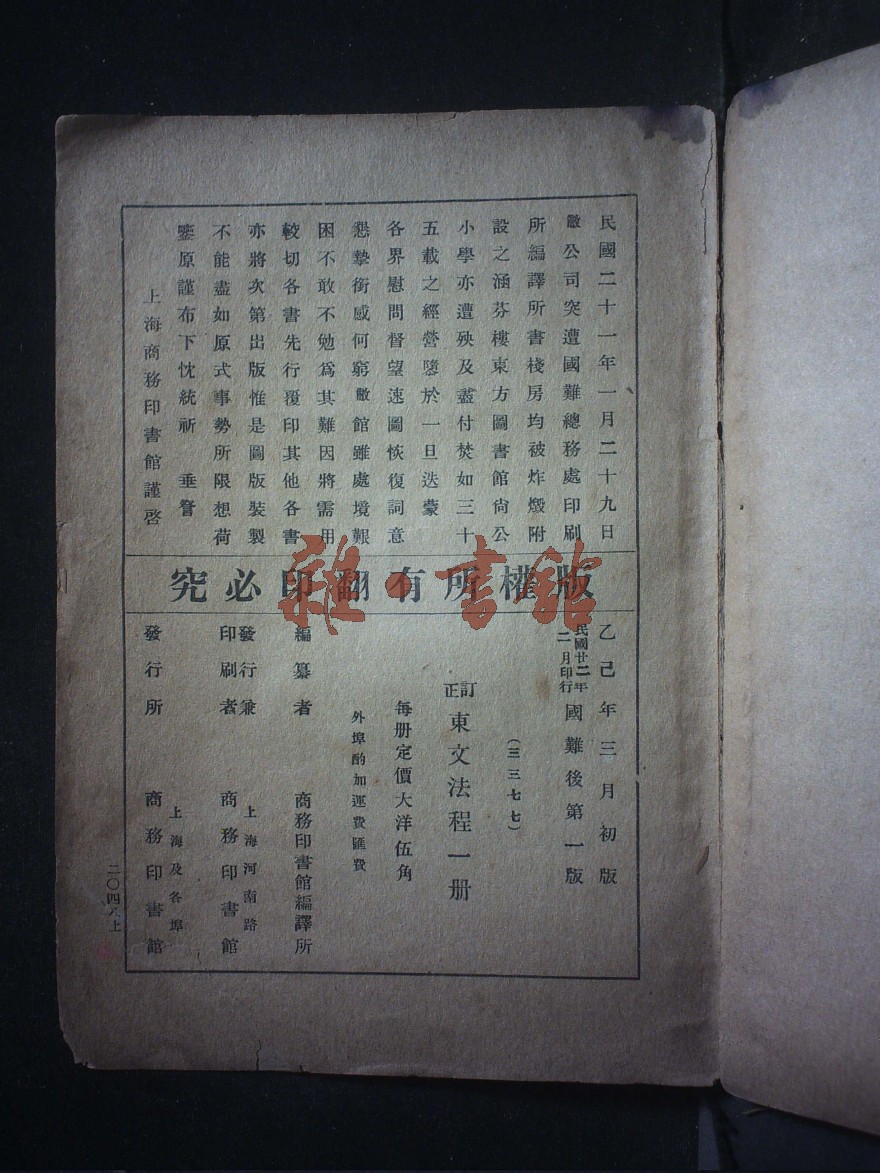 民國二十一年一月二十九日
敝公司突遭國難總務處印刷
所編譯所書棧房均被炸燬附
設之涵芬樓東方圖書館尙公
小學亦遭殃及盡付焚如三十
五載之經營隳於一旦迭蒙
各界慰問督望速圖恢復詞意
懇摯銜感何窮敝館雖處境艱
困不敢不勉爲其難因將需用
較切各書先行覆印其他各書
亦將次第出版惟是圖版裝製
不能盡如原式事勢所限想荷
鑒原謹布下忱統祈 垂詧
上海商務印書館謹啓
版權所有翻印必究
雜·書館
乙己年三月初版
民國廿二年
二月印行
國難後第一版
(三三七七)
訂正
東文法程一册
每册定價大洋伍角
外埠酌加運費匯費
編纂者 商務印書館編譯所
發行兼
印刷者
上海河南路
商務印書館
發行所
上海及各埠
商務印書館